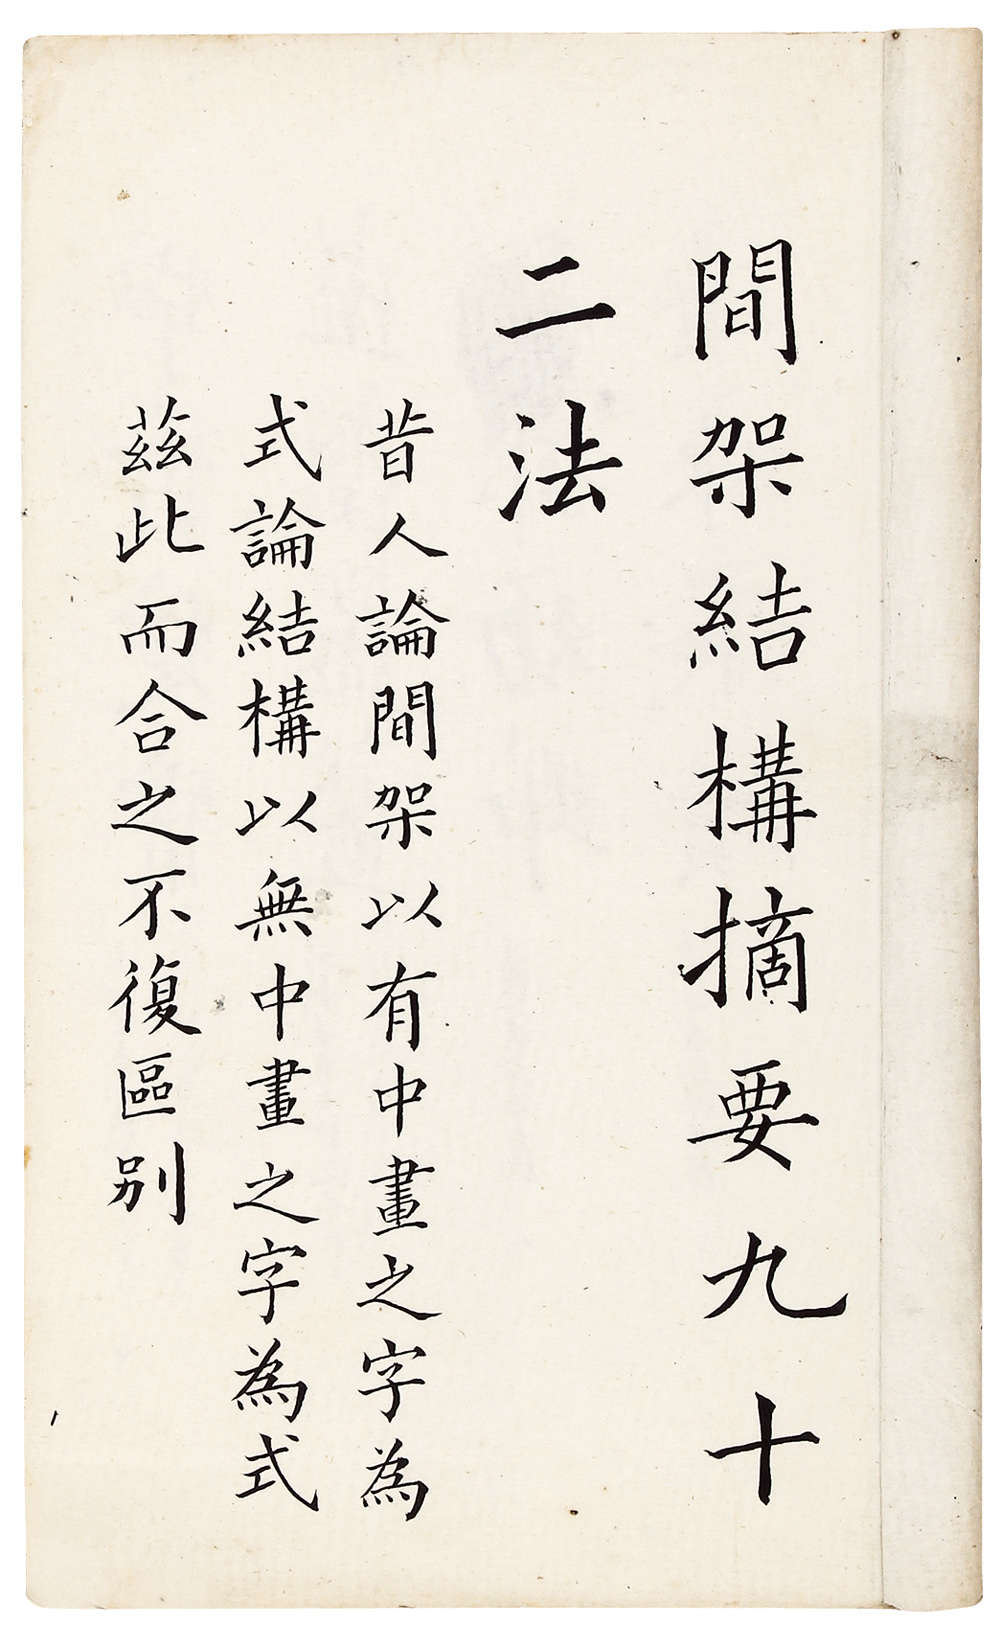 間架結構摘要九十
二法
昔人論間架以有中畫之字為
式論結構以無中畫之字為式
茲此而合之不復區别